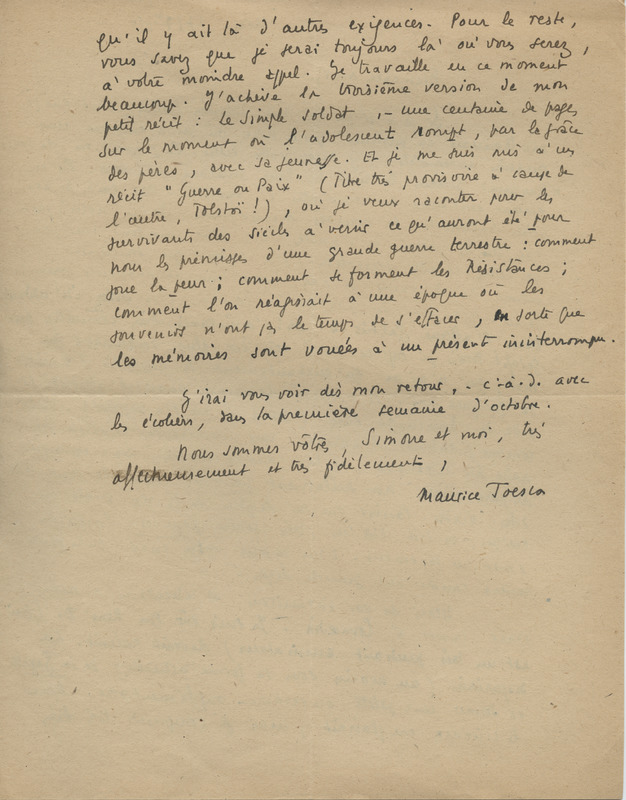 qu'il y ait là d'autres exigences. Pour le reste,
vous savez que je serai toujours là où vous serez,
à votre moindre appel. Je travaille en ce moment
beaucoup. J'achève la troisième version de mon
petit récit : le simple soldat, - une centaine de pages
sur le moment où l'adolescent rompt, par la grâce
des pères, avec sa jeunesse. Et je me suis mis à un
récit "Guerre ou Paix" (Titre très provisoire à cause de
l'autre, Tolstoï !), où je veux raconter pour les
survivants des siècles à venir ce qu'auront été pour
nous les prémisses d'une grande guerre terrestre : comment
joue la peur ; comment se forment les Résistances ;
comment l'on réagissait à une époque où les
souvenirs n'ont pas le temps de s'effacer, en sorte que
les mémoires sont vouées à un présent ininterrompu.
J'irai vous voir dès mon retour, - c'-à-d. avec
les écoliers, dans la première semaine d'octobre.
Nous sommes vôtres, Simone et moi, très
affectueusement et très fidèlement,
Maurice Toesca